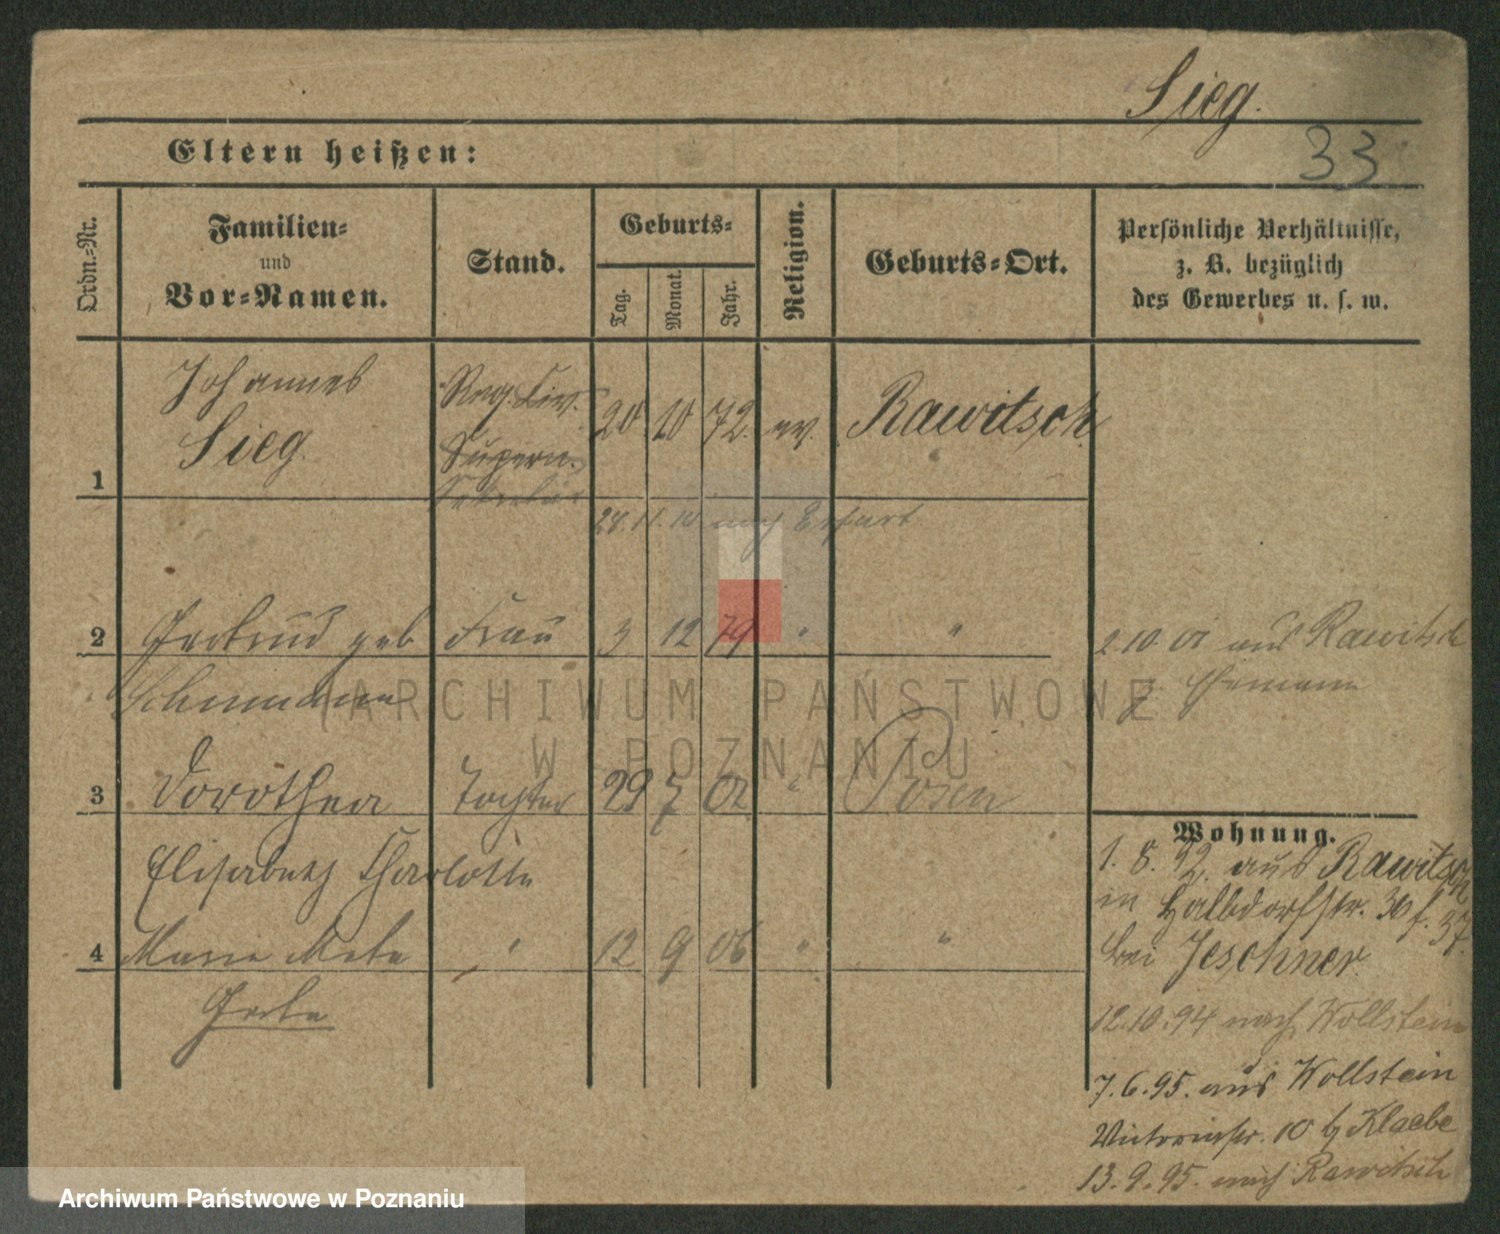 Sieg.
Eltern heißen:
33
Ordn.-Nr.
Familien-
und
Vor-Namen.
Stand.
Geburts-
Tag.
Monat.
Jahr.
Religion.
Geburts-Ort.
Persönliche Verhältnisse,
z. B. bezüglich
des Gewerbes u. s. w.
Johannes
Sieg.
Reg. Civ.
Supern.
Sekretär
1
20 10 72. ev. Rawitsch
24.11.10 nach Erfurt
2 Gertrud geb Frau 3 12 79 " "
Schumann
2.10.01 aus Rawitsch
ARCHIWUM PAŃSTWOWE
W POZNANIU
3 Dorothea Tochter 29 7 02 " Posen
Elisabeth Charlotte
4 Marie Meta " 12 9 06 " "
Grete
Wohnung.
1. 8. 92. aus Rawitsch
in Halbdorfstr. 36 f. 37.
bei Jeschner.
12.10.94 nach Wollstein
7.6.95. aus Wollstein
Victoriastr. 10 b Klaebe
13.9.95. nach Rawitsch
Archiwum Państwowe w Poznaniu